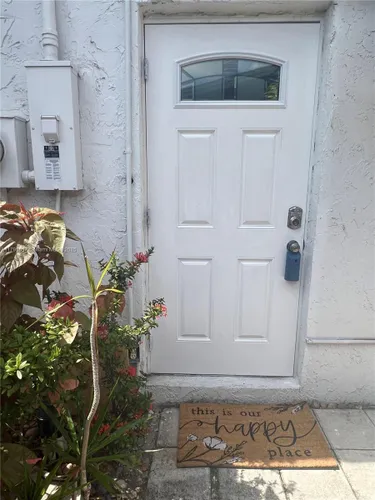 this is our
happy
place